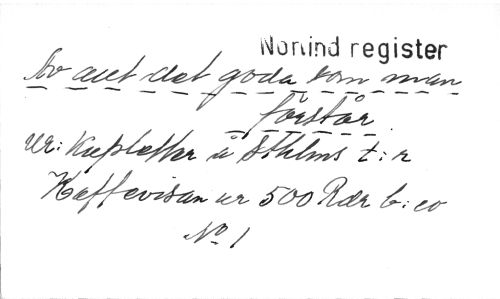 Nonind register
Av allt det goda som man
förstår
ur: Kupletter å Sthlms t:r
Kaffevisan ur 500 Rdr b:co
No 1